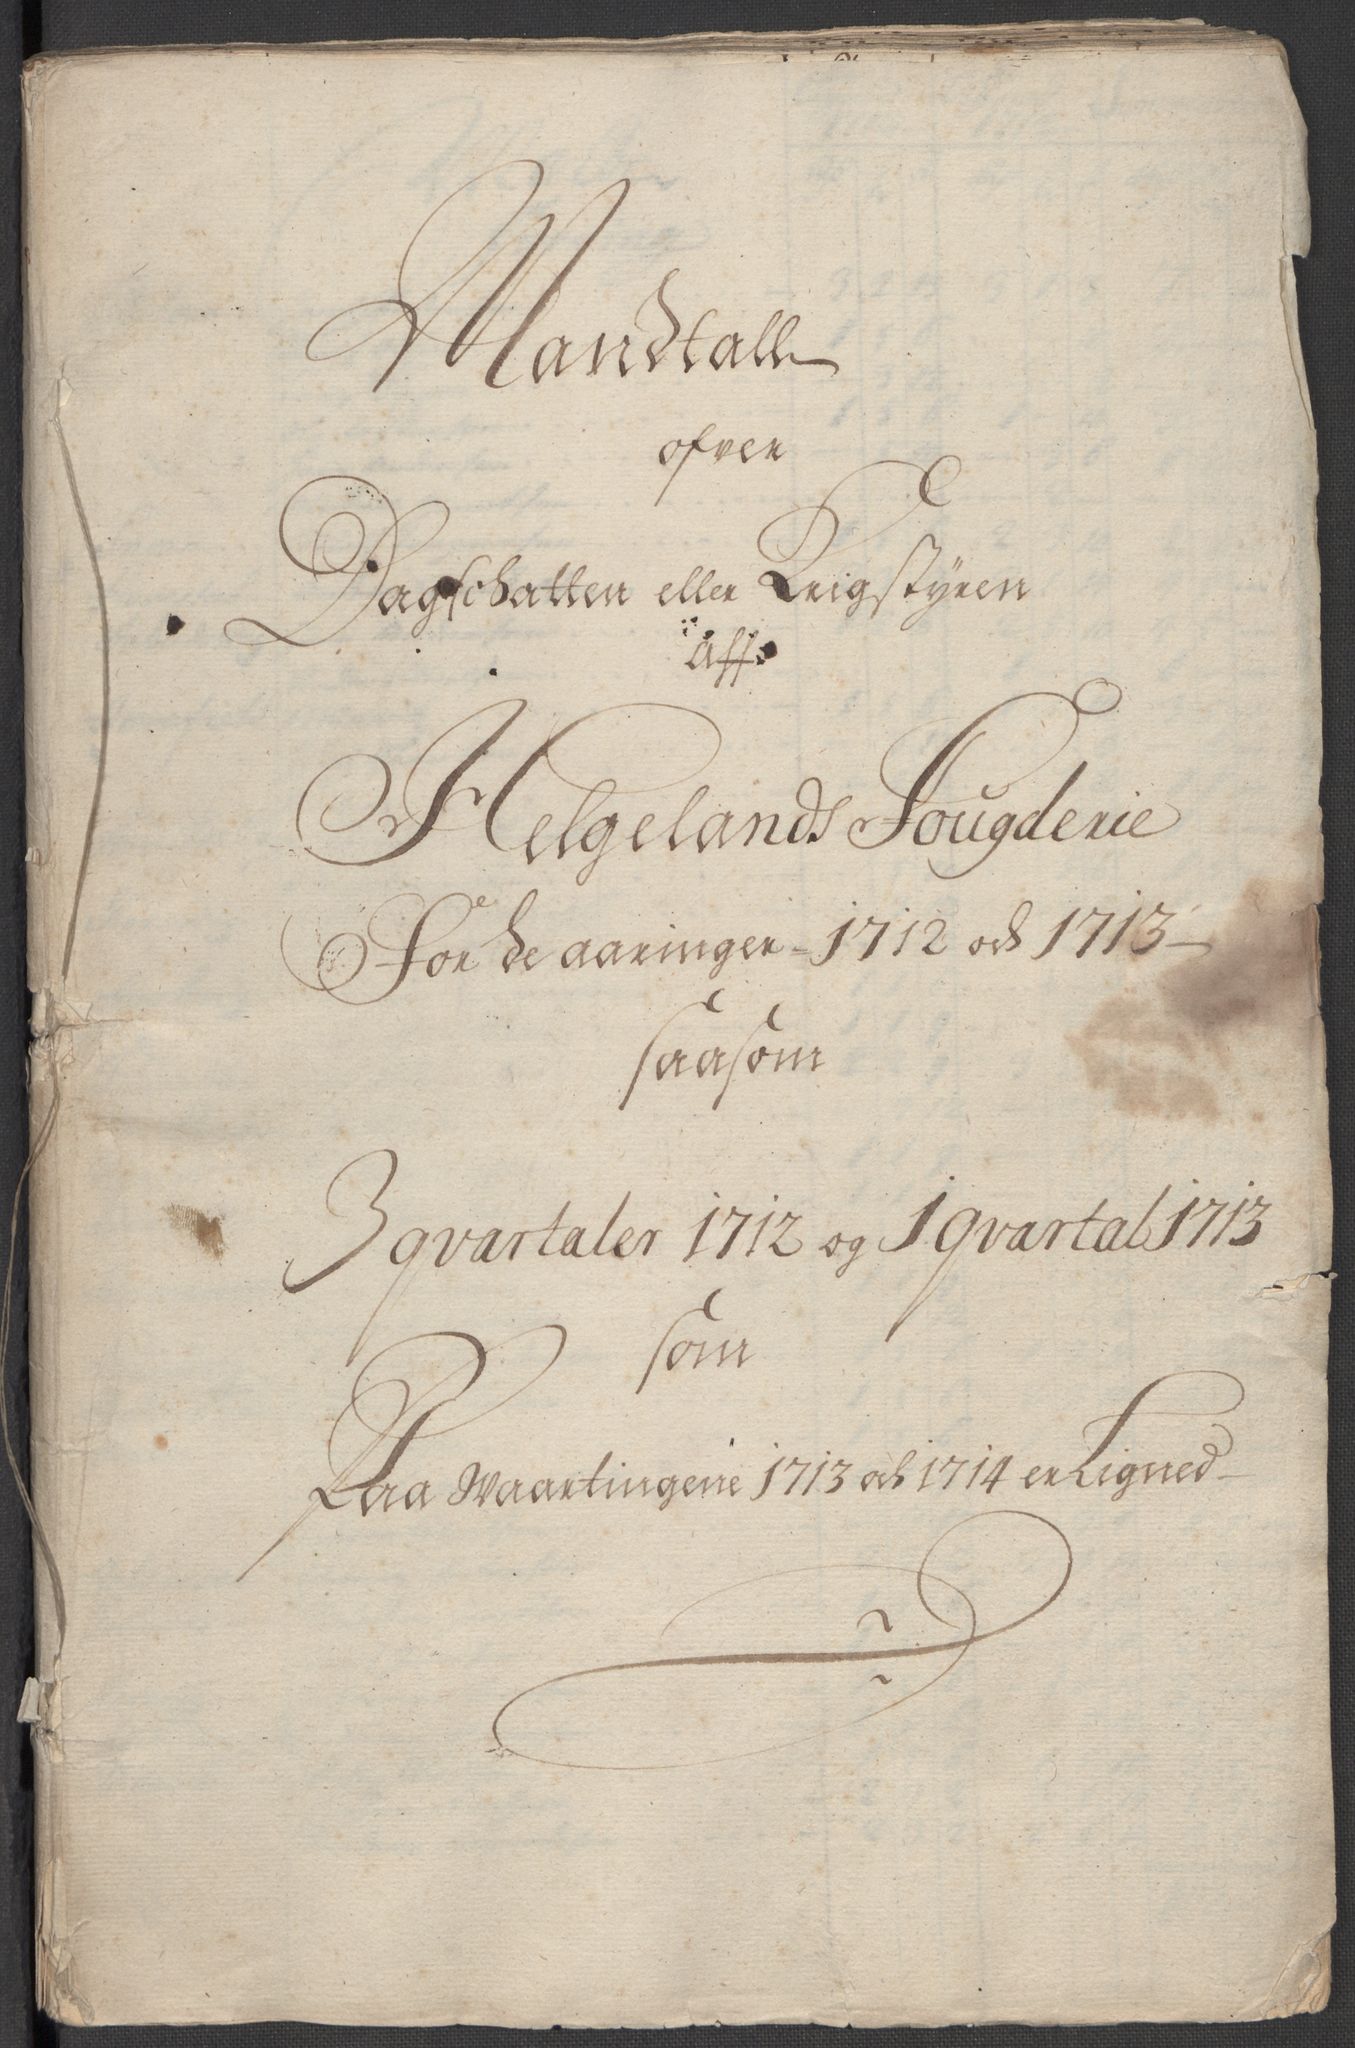 Mandtall
ofver
Dagschatten eller Krigstyren
Aff
Helgelands Fougderie
For de aaringer 1712 och 1713
saasom
3 qvartaler 1712 og 1 qvartal 1713
som
Paa Waartingene 1713 och 1714 er Ligned